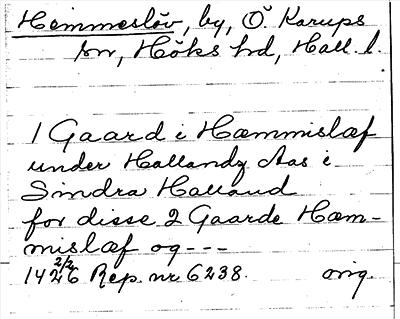 Hemmeslöv, by, Ö. Karups
sn, Höks hd, Hall. l.
1 Gaard i Hæmmislæf
under Hallandz Aas i
Sindra Halland
for disse 2 Gaarde Hæm-
mislæf og ---
1426 2/2 Rep. nr. 6238. orig.